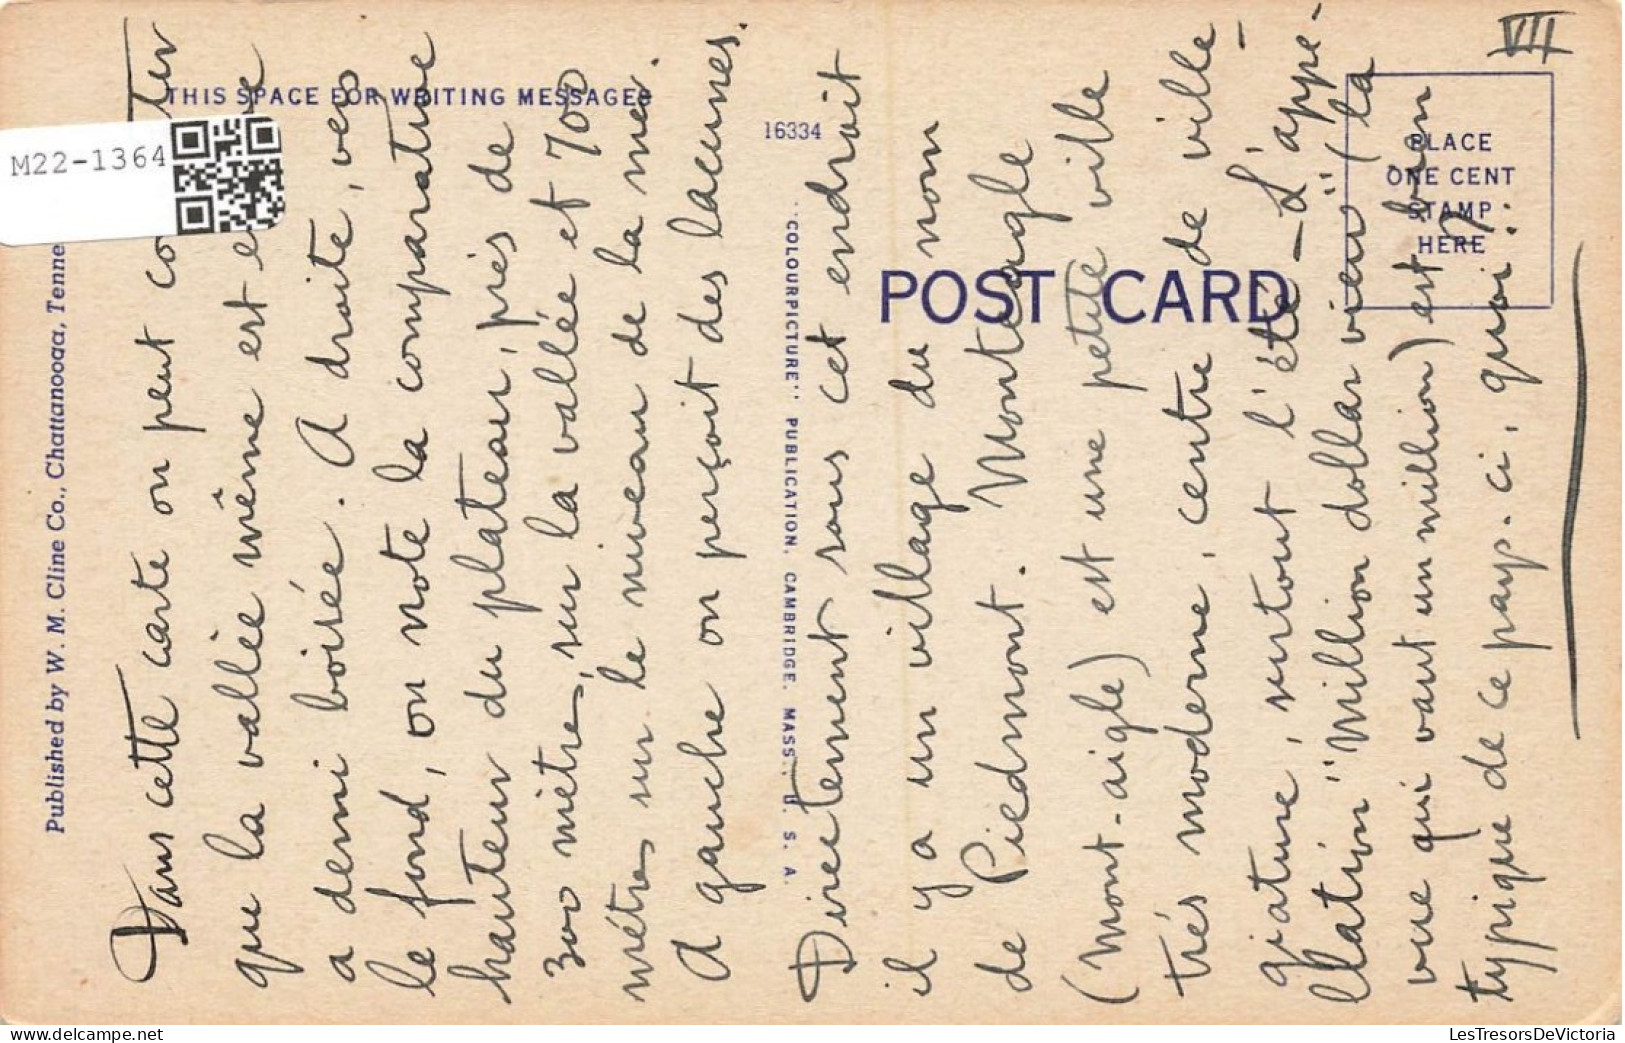 VII
THIS SPACE FOR WRITING MESSAGES
M22-1364
16334
PLACE
ONE CENT
STAMP
HERE
POST CARD
Published by W. M. Cline Co., Chattanooga, Tenne
"COLOURPICTURE" PUBLICATION, CAMBRIDGE, MASS., U. S. A.
Dans cette carte on peut
que la vallée même est
a demi boisée. A droite, vers
le fond, on note la comparative
hauteur du plateau, près de
300 mètres, sur la vallée et 700
mètres sur le niveau de la mer.
A gauche on perçoit des lacunes.
Directement sous cet endroit
il y a un village du nom
de Piedmont. Monteagle
(Mont-aigle) est une petite ville
très moderne, centre de ville-
giature, surtout l'été - L'appe-
llation "Million dollar view" (la
vue qui vaut un million) est bien
typique de ce pays-ci, quoi?!
LesTresorsDeVictoria